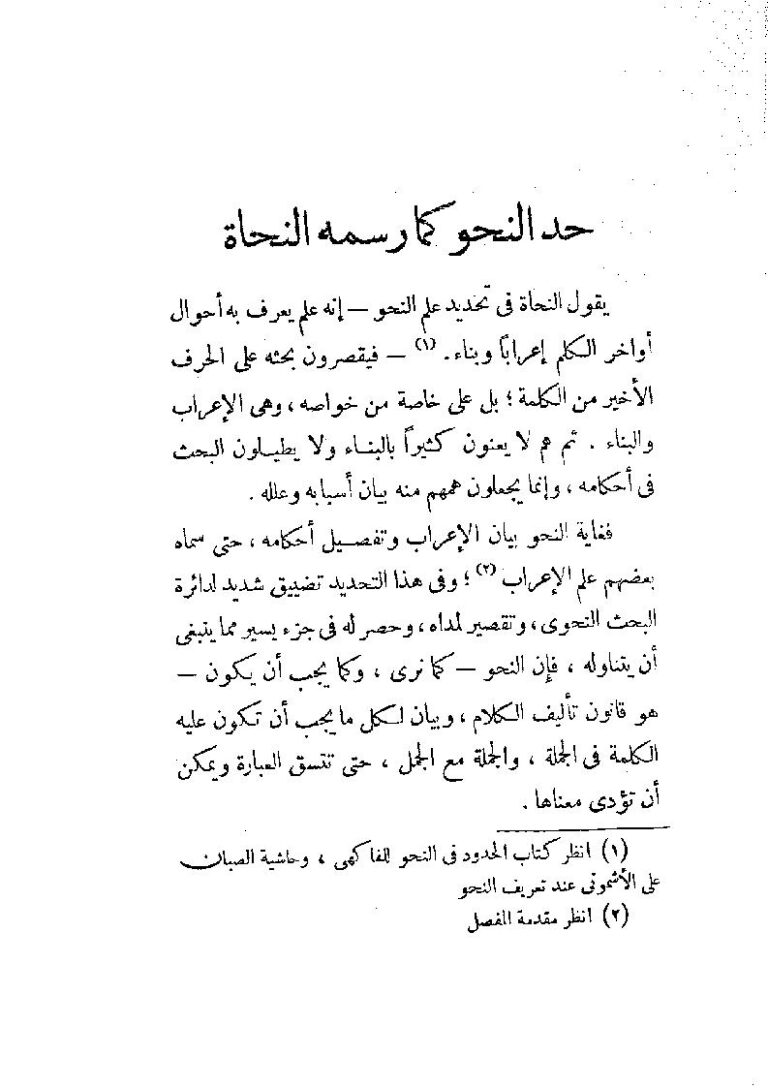 حد النحو كما رسمه النحاة
يقول النحاة فى تحديد علم النحو — إنه علم يعرف به أحوال
أواخر الكلم إعرابًا وبناء. (١) — فيقصرون بحثه على الحرف
الأخير من الكلمة ؛ بل على خاصة من خواصه ، وهى الإعراب
والبناء . ثم هم لا يعنون كثيراً بالبناء ولا يطيلون البحث
فى أحكامه ، وإنما يجعلون همهم منه بيان أسبابه وعلله .
فغاية النحو بيان الإعراب وتفصيل أحكامه ، حتى سماه
بعضهم علم الإعراب (٢) ؛ وفى هذا التحديد تضييق شديد لدائرة
البحث النحوى ، وتقصير لمداه ، وحصر له فى جزء يسير مما ينبغى
أن يتناوله ، فإن النحو — كما نرى ، وكما يجب أن يكون —
هو قانون تأليف الكلام ، وبيان لكل ما يجب أن تكون عليه
الكلمة فى الجملة ، والجملة مع الجمل ، حتى تتسق العبارة ويمكن
أن تؤدى معناها .
(١) انظر كتاب الحدود فى النحو للفاكهى ، وحاشية الصبان
على الأشمونى عند تعريف النحو
(٢) انظر مقدمة المفصل